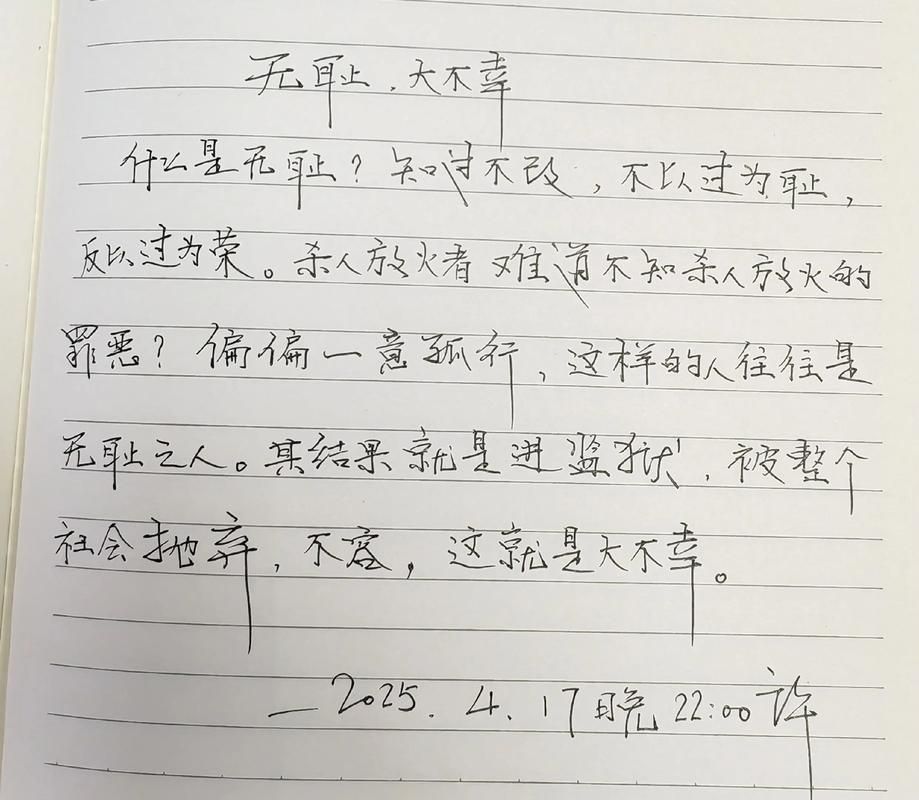 无耻，大不幸
什么是无耻？知过不改，不以过为耻，
反以过为荣。杀人放火者难道不知杀人放火的
罪恶？偏偏一意孤行，这样的人往往是
无耻之人。其结果就是进监狱，被整个
社会抛弃，不容，这就是大不幸。
—2025.4.17晚22:00许